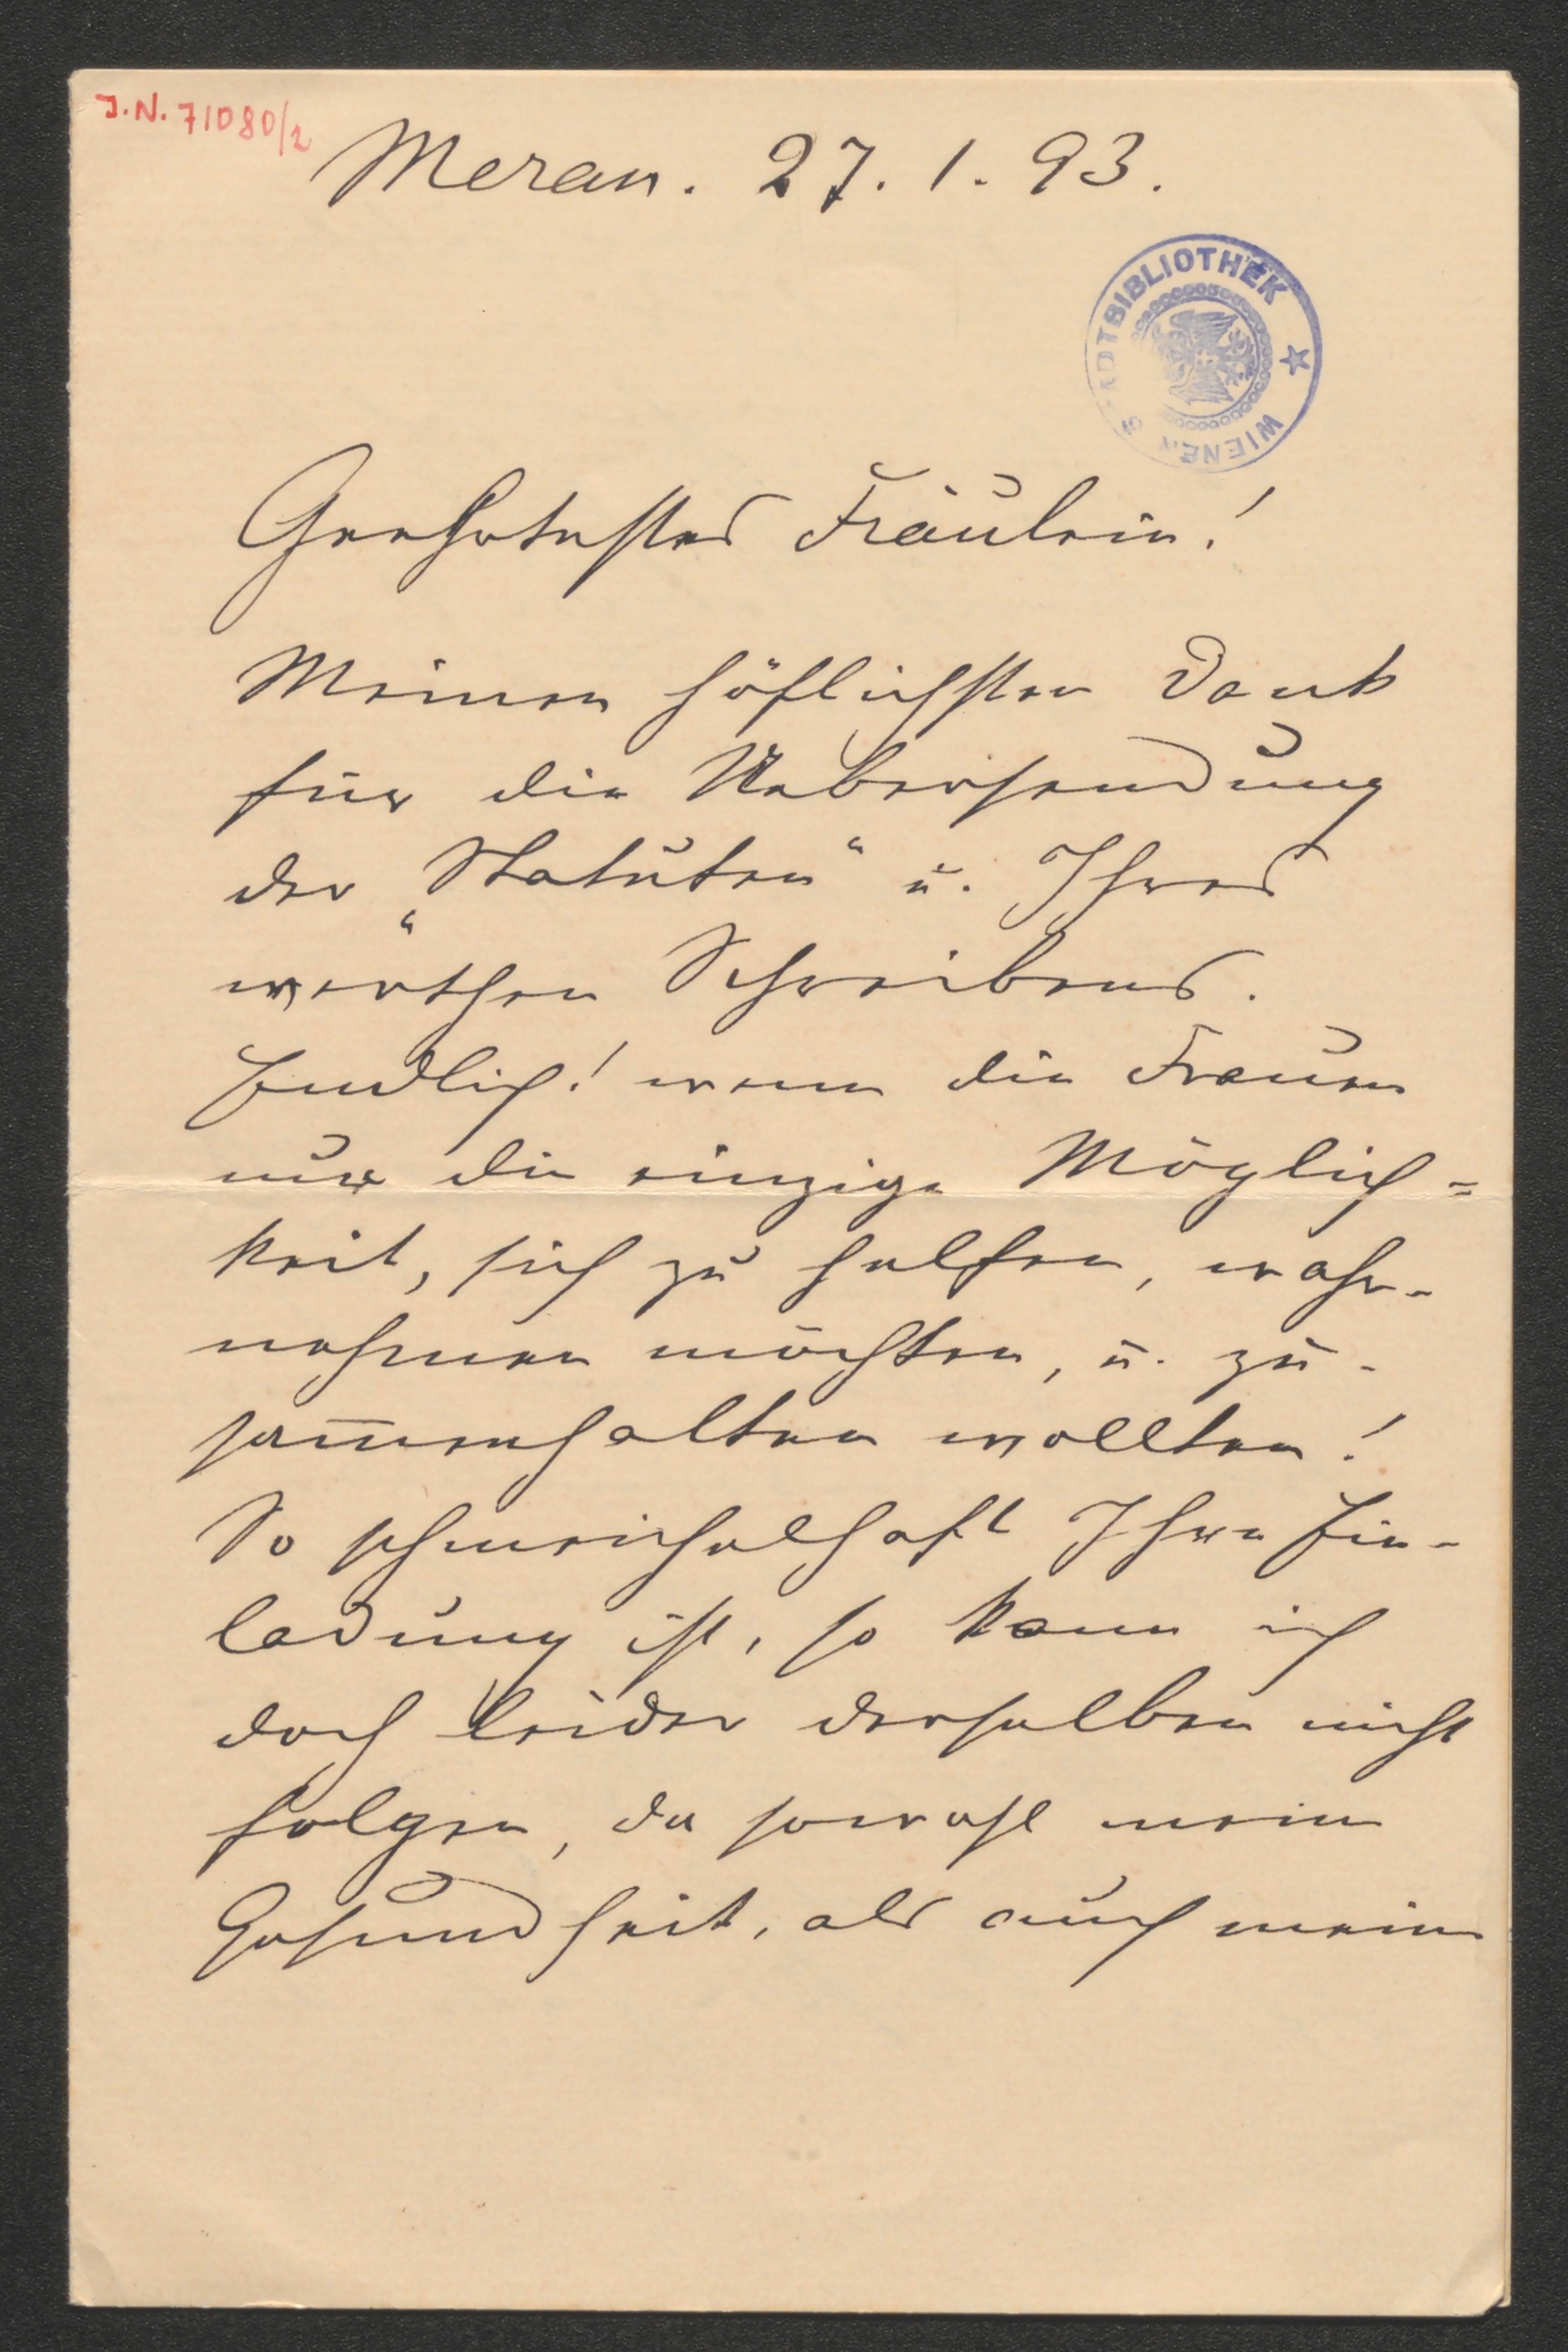 J.N. 71080/2
Meran. 27. 1. 93.
STADTBIBLIOTHEK
WIENER
Geehrtestes Fräulein!
Meinen höflichsten Dank
für die Uebersendung
der „Statuten“ u. Ihres
werthen Schreibens.
Endlich! wenn die Frauen
nur die einzige Möglich=
keit, sich zu helfen, wahr-
nehmen möchten, u. zu-
sam̅enhalten wollten!
So schmeichelhaft Ihre Ein-
ladung ist, so kann ich
doch leider derselben nicht
folgen, da sowohl meine
Gesundheit, als auch meine